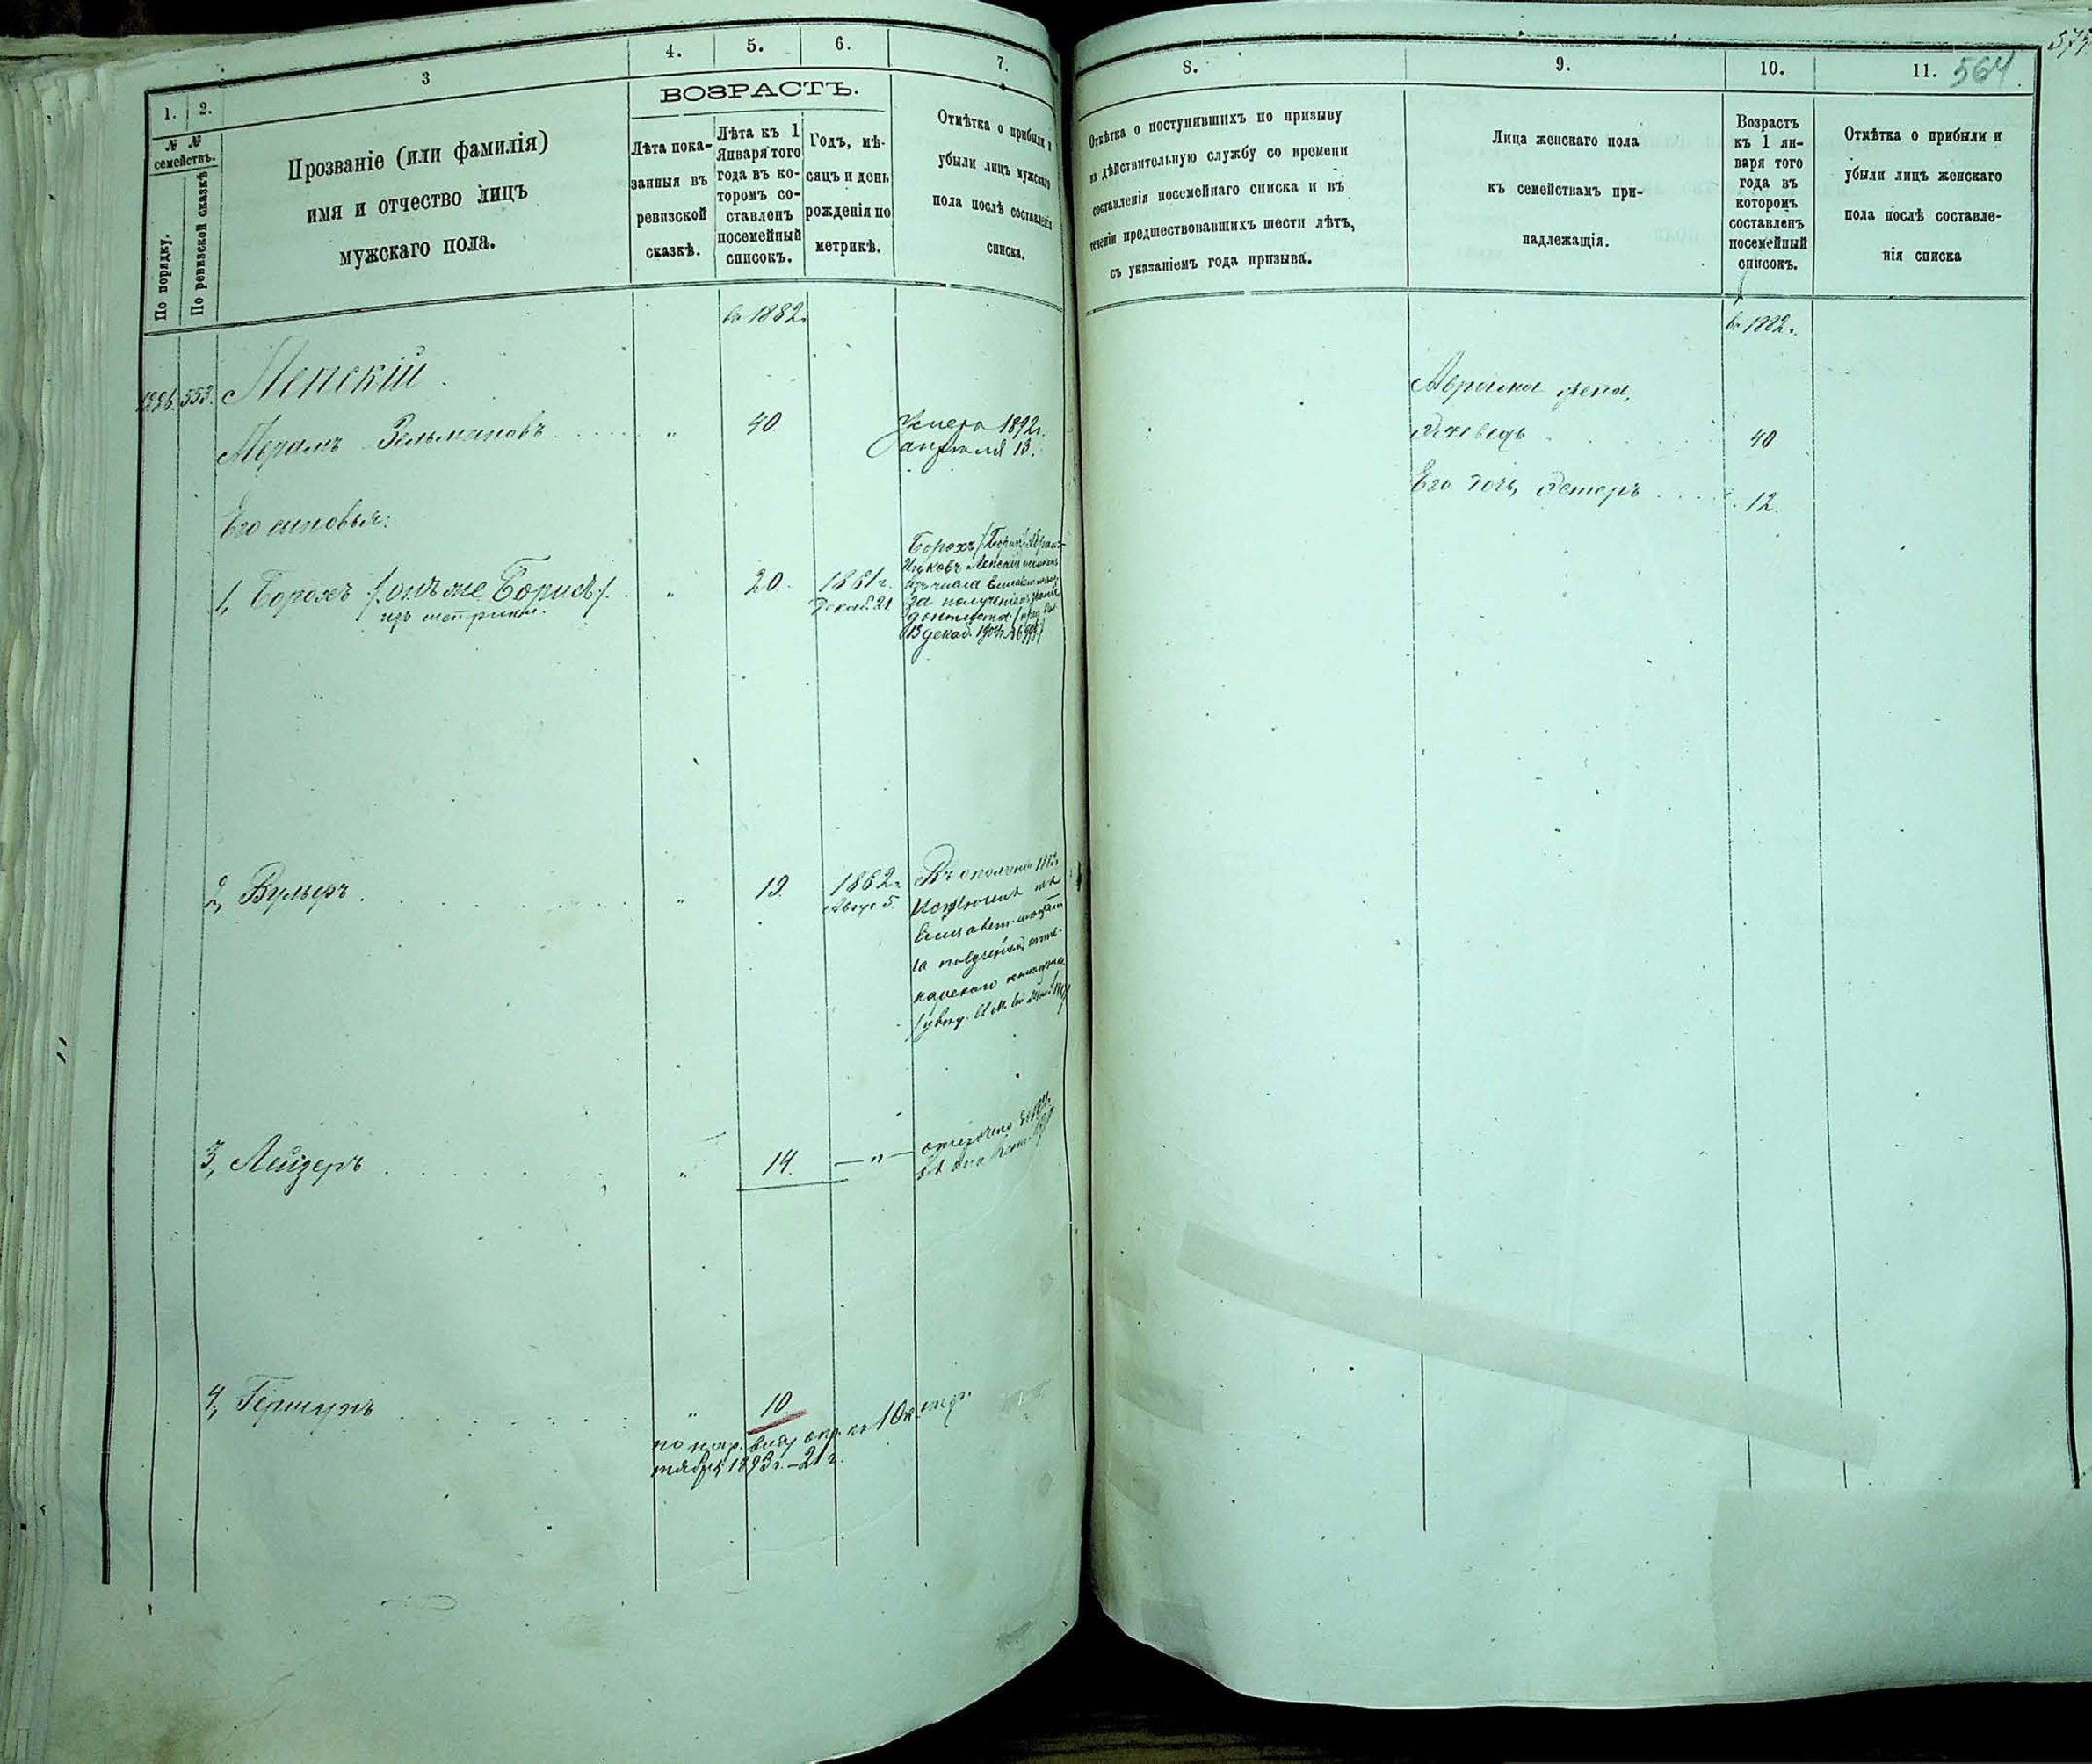 1.
2.
3
4.
5.
6.
7.
№ №
семействъ.
По порядку.
По ревизской сказкѣ
Прозваніе (или фамилія)
имя и отчество лицъ
мужскаго пола.
ВОЗРАСТЪ.
Лѣта пока-
занныя въ
ревизской
сказкѣ.
Лѣта къ 1
Января того
года въ ко-
торомъ со-
ставленъ
посемейный
списокъ.
Годъ, мѣ-
сяцъ и день
рожденія по
метрикѣ.
Отмѣтка о прибыли и
убыли лицъ мужскаго
пола послѣ составленія
списка.
въ 1882г.
553.
Ленскій
Абрамъ Зельмановъ
"
40
Умеръ 1892г.
апрѣля 13.
Его сыновья:
1, Борохъ /онъ же Борисъ/.
"
20.
1861г.
Декаб. 21
Борохъ /Борисъ/
за полученіемъ
дантиста
13 декаб.
2, Вульфъ
"
19.
1862г.
Август. 5.
Въ ополченіи
за полученіемъ
3, Лейзеръ
"
14.
— " —
4, Гершунъ
"
10
по нар. виду опр. къ 1 Ок
тября 1893г. — 21 г.
8.
9.
10.
11.
564
Отмѣтка о поступившихъ по призыву
на дѣйствительную службу со времени
составленія посемейнаго списка и въ
теченіи предшествовавшихъ шести лѣтъ,
съ указаніемъ года призыва.
Лица женскаго пола
къ семействамъ при-
надлежащія.
Возрастъ
къ 1 ян-
варя того
года въ
которомъ
составленъ
посемейный
списокъ.
Отмѣтка о прибыли и
убыли лицъ женскаго
пола послѣ составле-
нія списка
въ 1882г.
Абрама жена,
40
Его дочь Эстеръ
12.